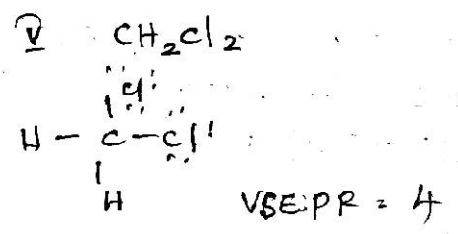 V CH₂Cl₂
Cl
H - C - Cl
H
VSEPR = 4